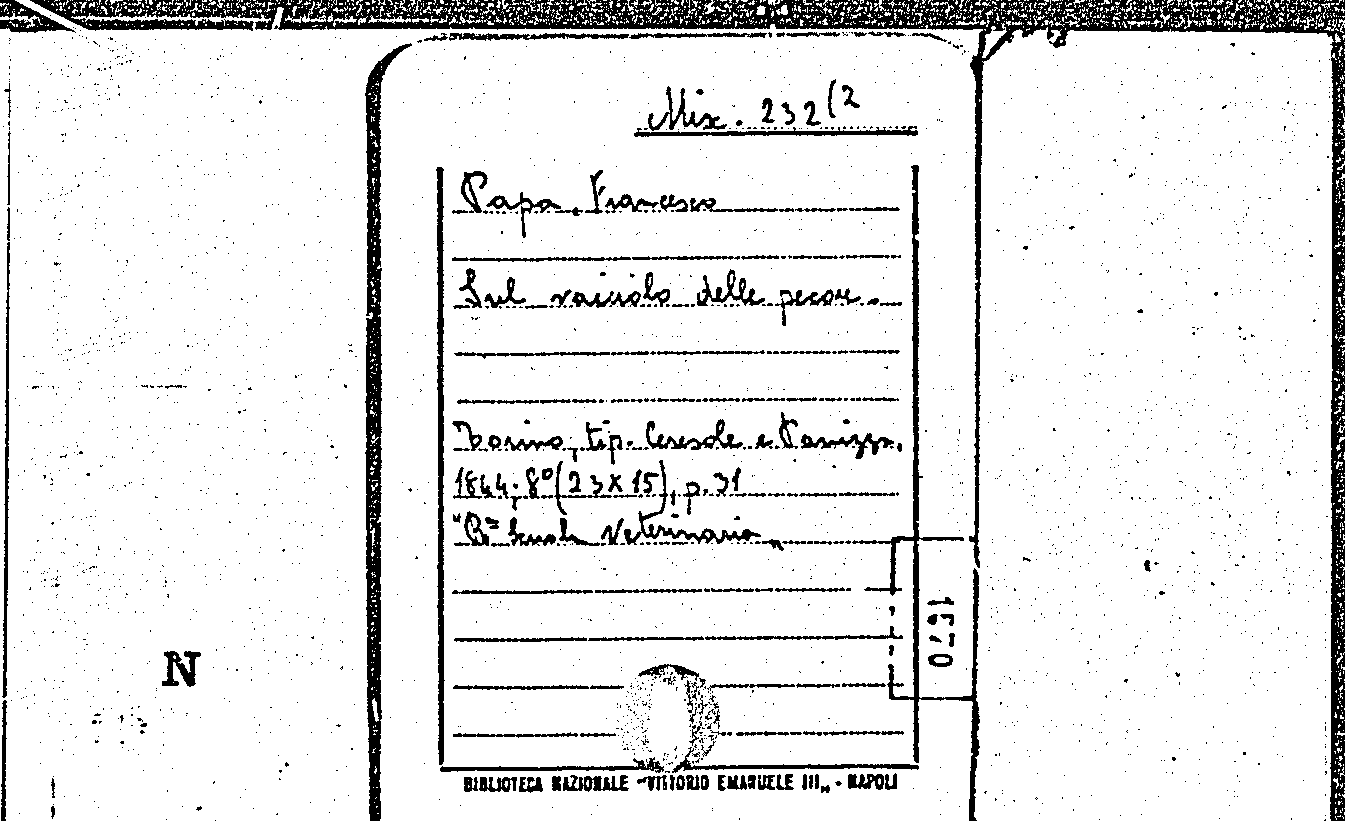 Mix. 232(2
Papa, Francesco
Sul vaiuolo delle pecore.
Torino, tip. Ceresole e Panizza,
1844; 8º (23 x 15), p. 31
"R.a Scuola Veterinaria„
1570
N
BIBLIOTECA NAZIONALE "VITTORIO EMANUELE III„ - NAPOLI